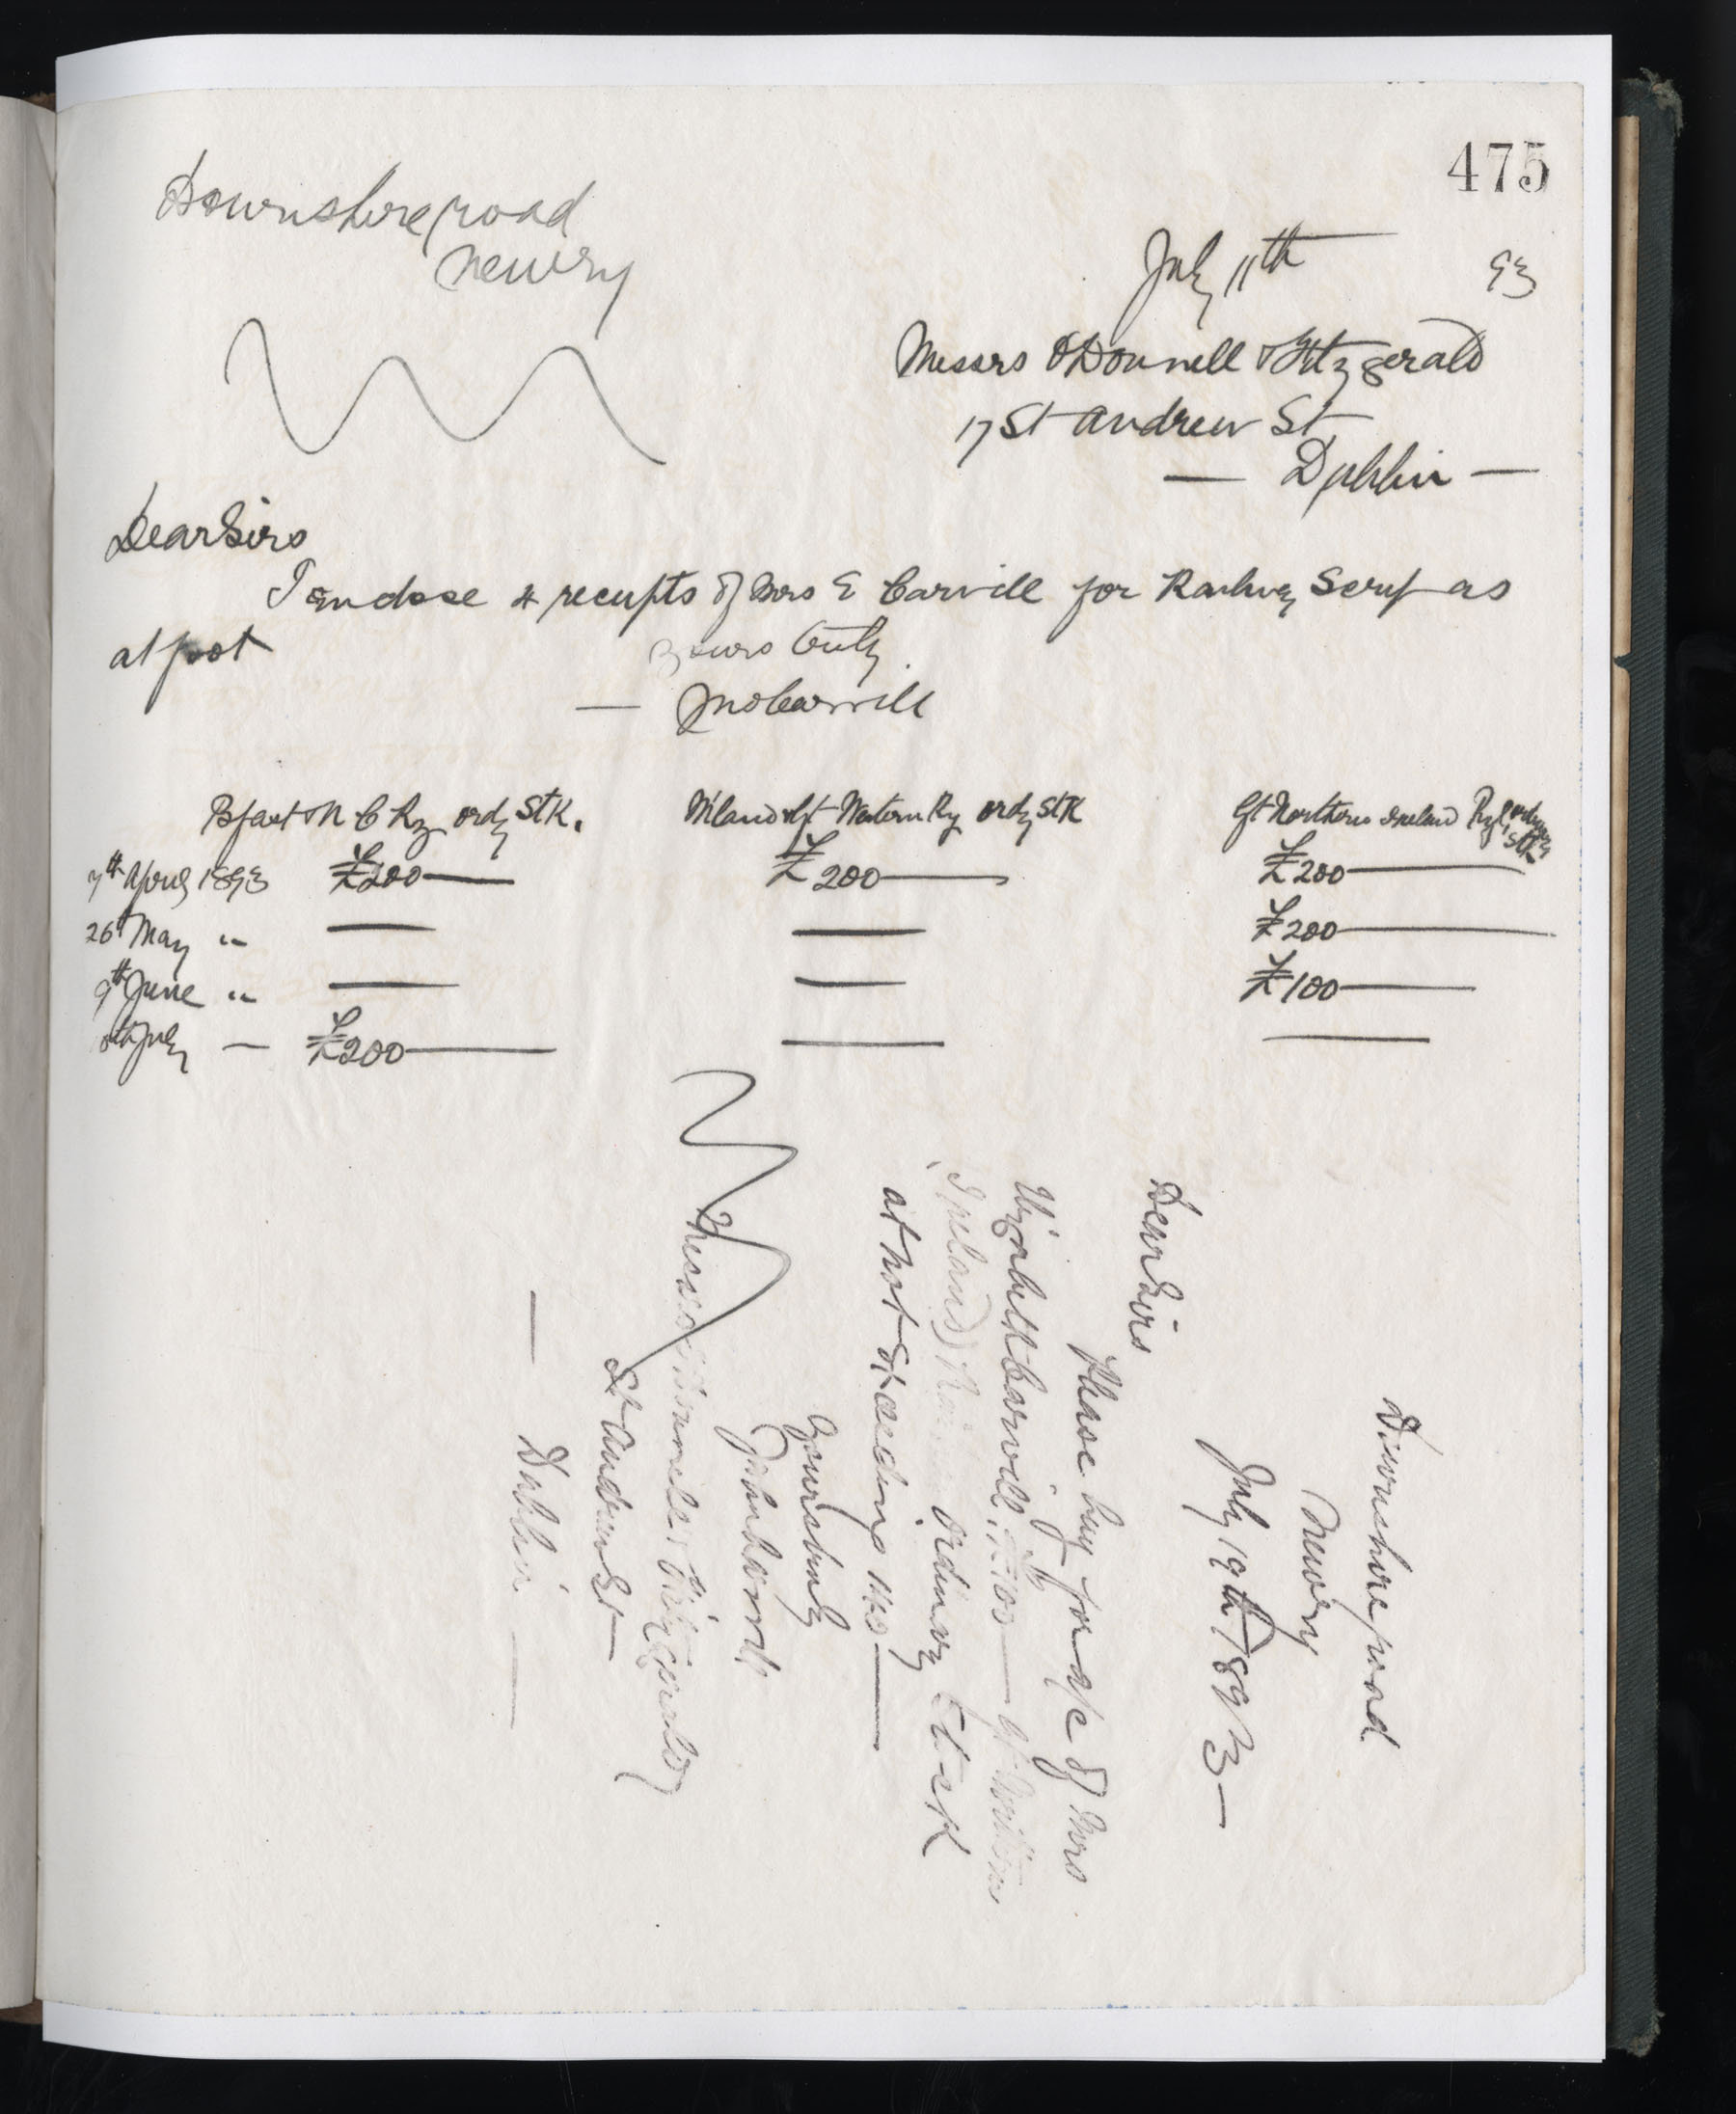 475
Downshire road
Newry
July 11th 93
Messrs O'Donnell & Fitzgerald
17 St Andrew St
— Dublin —
Dear Sirs
I enclose 4 receipts of Mrs E Carvill for Railway Scrip as
at foot
Yours truly
— Jno Carvill
Bfast & N C Ry ordy Stk. Mland & Gt Western Ry ordy Stk Gt Northern Ireland Ry ordinary Stk
7th April 1893 £200— £200— £200—
26th May " — — £200—
9th June " — — £100—
July — £200— — —
Downshire road
Newry
July 19th 1893—
Dear Sirs
Please buy for a/c of Mrs
Elizabeth Carvill £100— Gt Northern
(Ireland) Ordinary Stock
at not exceeding
Yours truly
John Carvill
Messrs O'Donnell & Fitzgerald
St Andrew St
— Dublin —